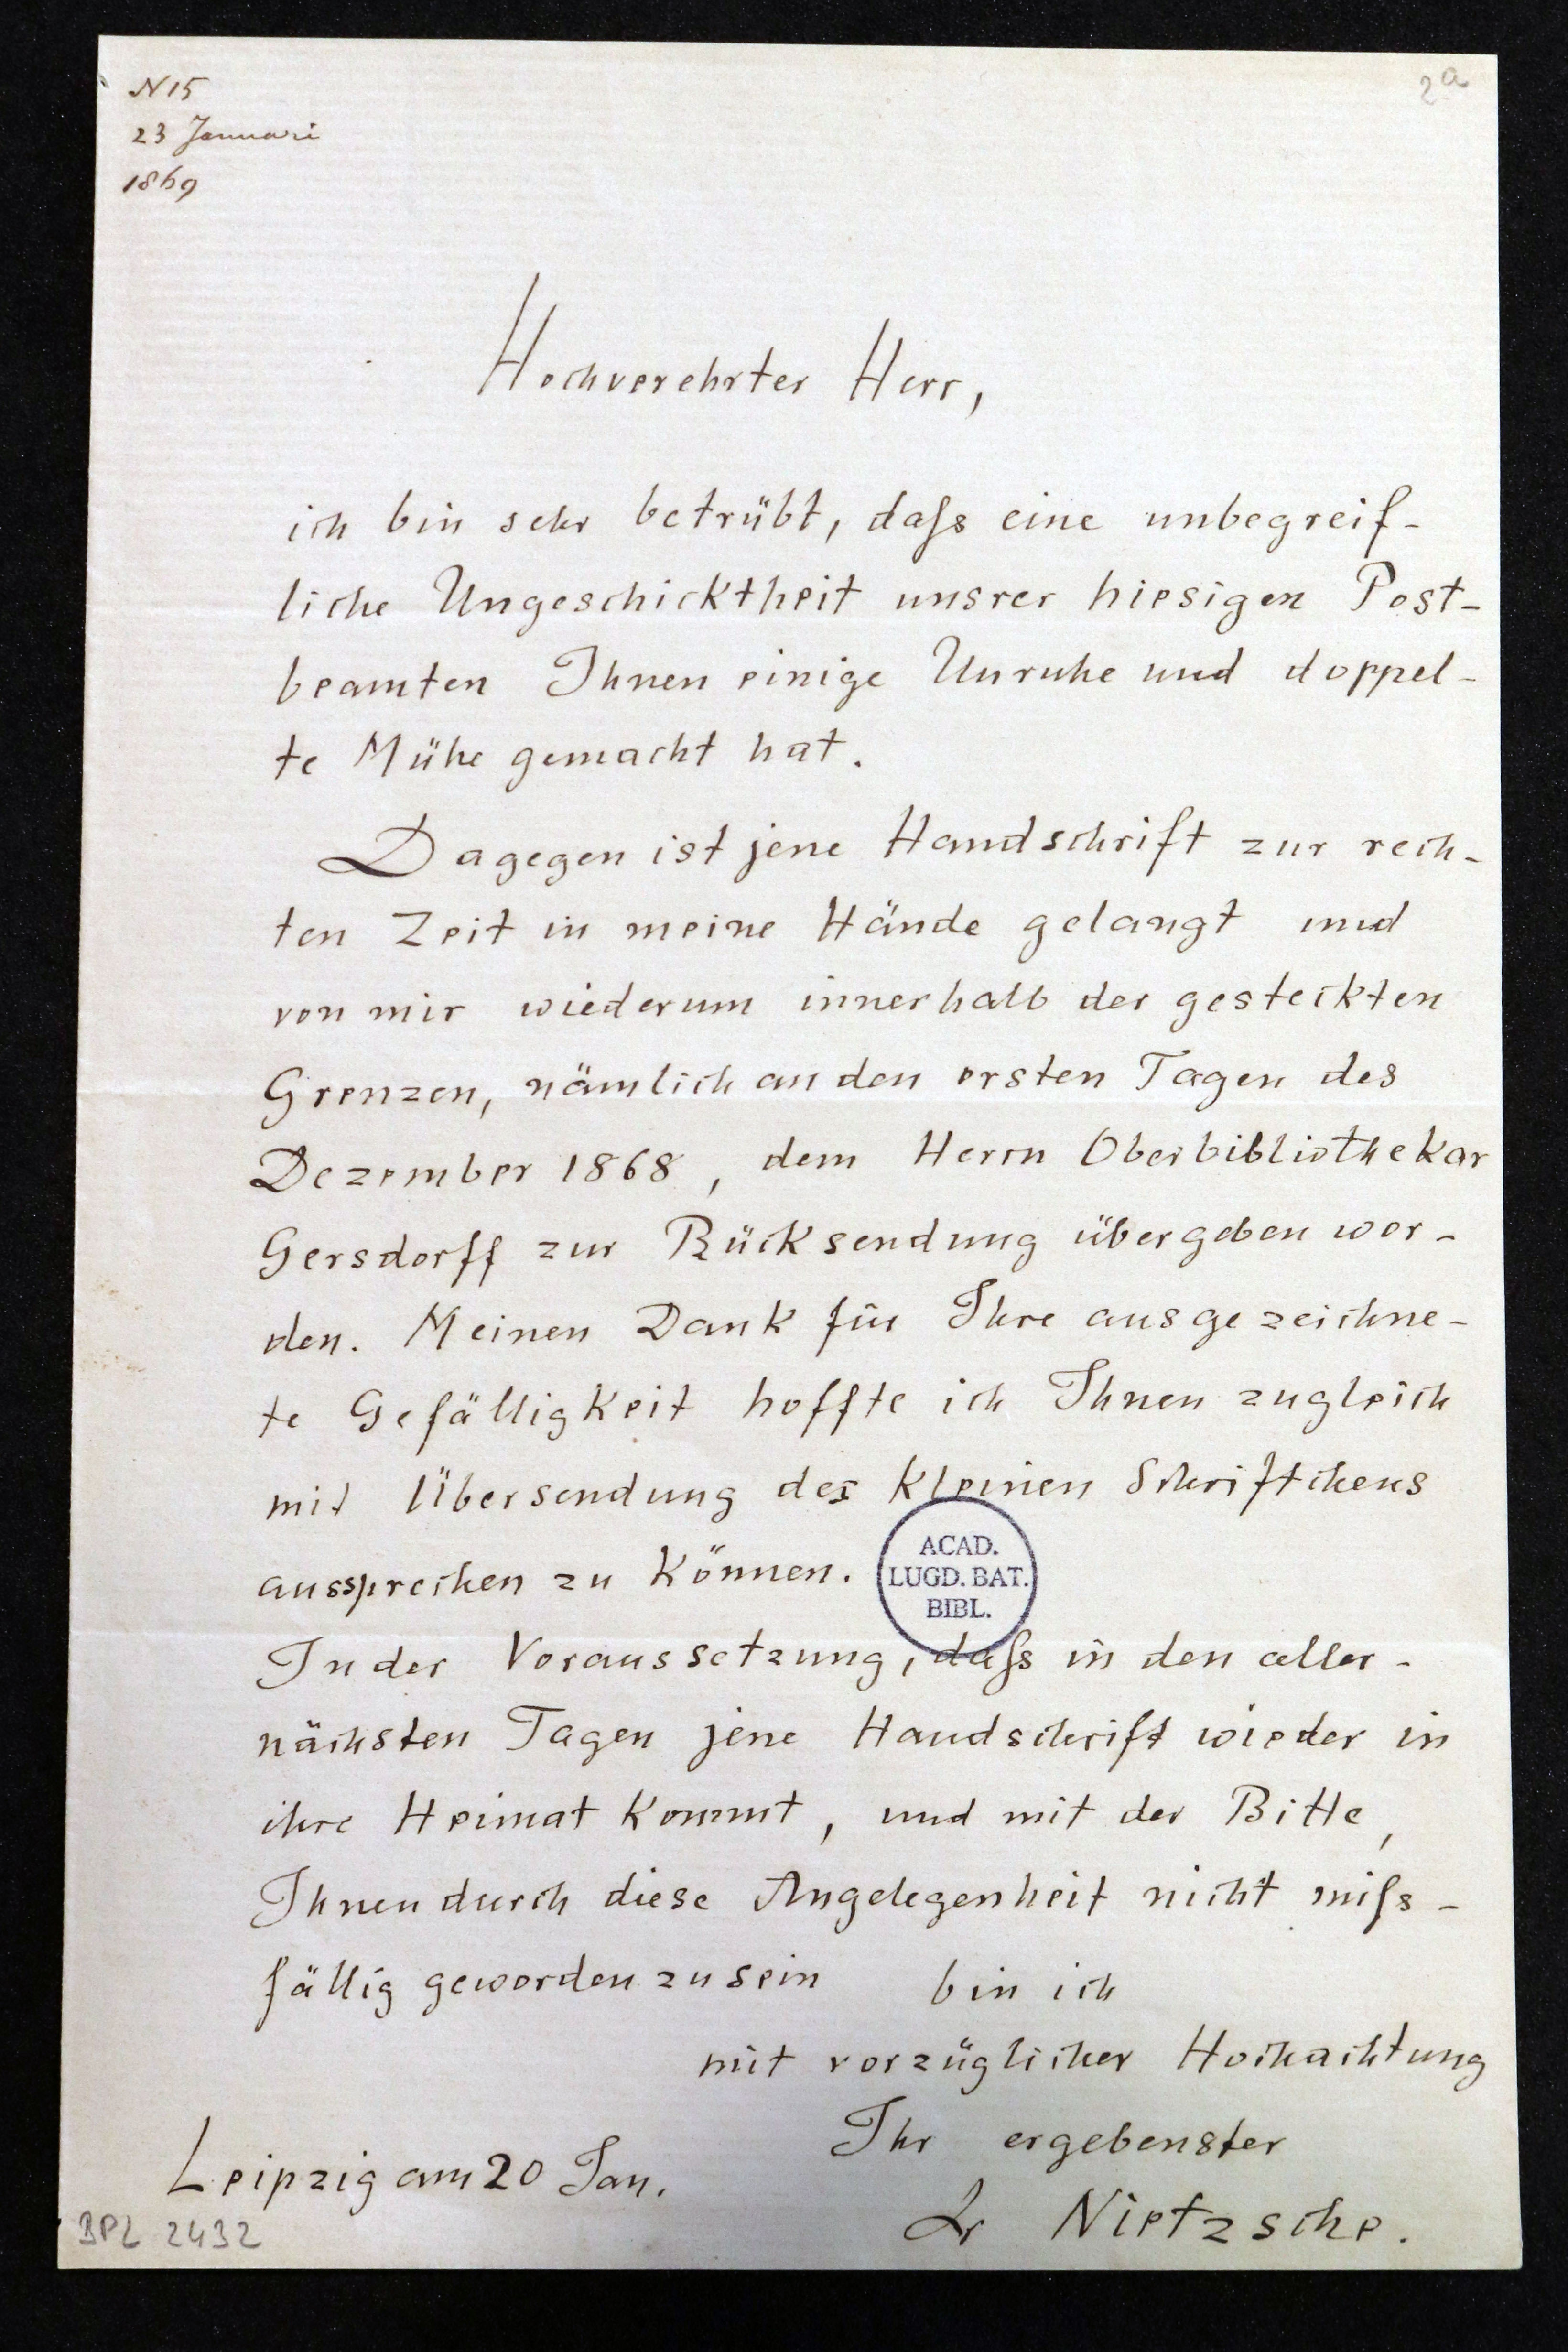 N 15
2a
23 Januari
1869
Hochverehrter Herr,
ich bin sehr betrübt, daſs eine unbegreif-
liche Ungeschicktheit unsrer hiesigen Post-
beamten Ihnen einige Unruhe und doppel-
te Mühe gemacht hat.
Dagegen ist jene Handschrift zur rech-
ten Zeit in meine Hände gelangt und
von mir wiederum innerhalb der gesteckten
Grenzen, nämlich an den ersten Tagen des
Dezember 1868, dem Herrn Oberbibliothekar
Gersdorff zur Rücksendung übergeben wor-
den. Meinen Dank für Ihre ausgezeichne-
te Gefälligkeit hoffte ich Ihnen zugleich
mit Übersendung des kleinen Schriftchens
aussprechen zu können.
ACAD.
LUGD. BAT.
BIBL.
In der Voraussetzung, daſs in den aller-
nächsten Tagen jene Handschrift wieder in
ihre Heimat kommt, und mit der Bitte,
Ihnen durch diese Angelegenheit nicht miſs-
fällig geworden zu sein bin ich
mit vorzüglicher Hochachtung
Ihr ergebenster
Leipzig am 20 Jan.
Dr Nietzsche.
BPL 2432